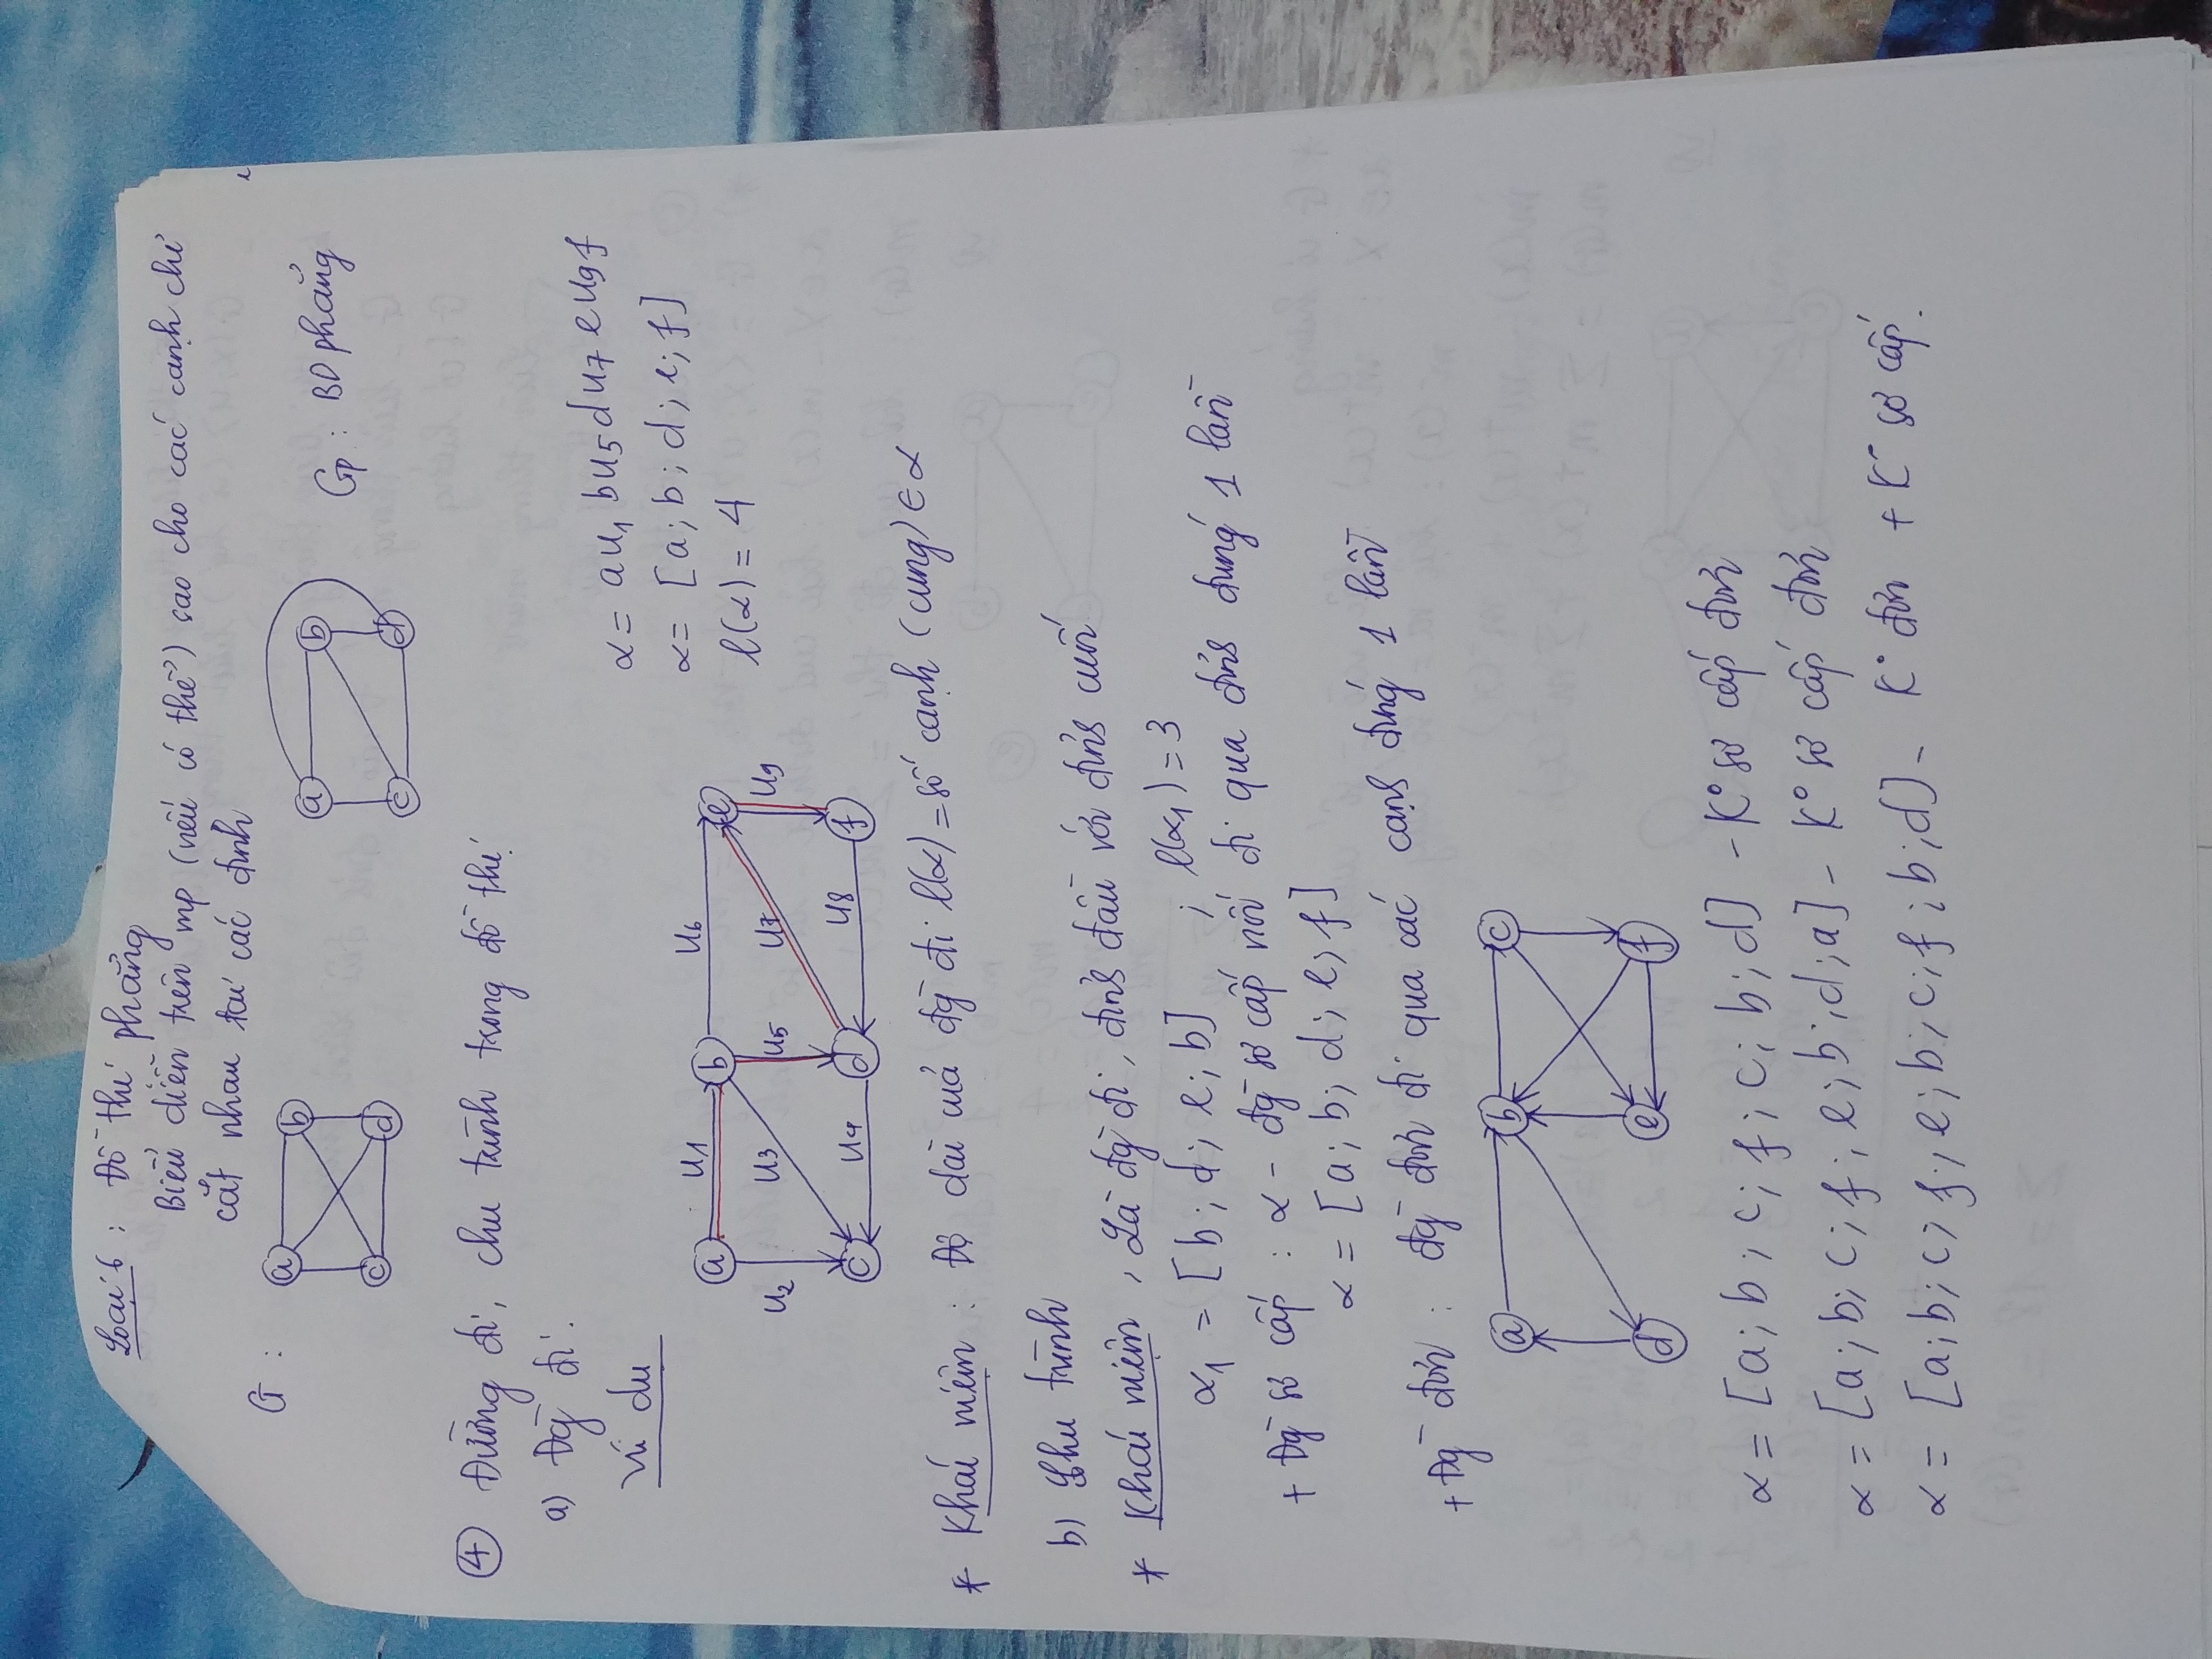 Loại 6 : Đồ thị phẳng
Biểu diễn trên mp (nếu có thể) sao cho các cạnh chỉ
cắt nhau tại các đỉnh
G :
a b
c d
a b
c d
Gp : BD phẳng
④ Đường đi, chu trình trong đồ thị
a) Đg đi :
Ví dụ
α = au₁ bu₅ du₇ eu₉ f
α = [a; b; d; e; f]
l(α) = 4
a u₁ b u₆ e
u₂ u₃ u₅ u₇ u₉
c u₄ d u₈ f
* Khái niệm : Độ dài của đg đi l(α) = số cạnh (cung) ∈ α
b) Chu trình
* Khái niệm , Là đg đi, đỉnh đầu với đỉnh cuối
α₁ = [b; d; e; b] ; l(α₁) = 3
+ Đg sơ cấp : α – đg sơ cấp nối đi qua đỉnh đúng 1 lần
α = [a; b; d; e; f]
+ Đg đơn : đg đơn đi qua các cạnh đúng 1 lần
a b c
d e f
α = [a; b; c; f; c; b; d] – K° sơ cấp đơn
α = [a; b; c; f; e; b; d; a] – K° sơ cấp đơn
α = [a; b; c; f; e; b; c; f; b; d] – K° đơn + K° sơ cấp.